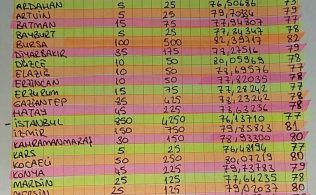 ARDAHAN 5 25 76,50686 79
ARTVİN 5 25 79,70334 79
BATMAN 15 75 77,94307 77
BAYBURT 5 25 77,84347 78
BURSA 100 500 82,39717 82
DİYARBAKIR 35 175 77,27516 79
DÜZCE 10 50 80,05969 80
ELAZIĞ 10 50 77,69576 78
ERZİNCAN 10 50 77,82035 77
ERZURUM 15 75 77,28242 77
GAZİANTEP 85 425 78,23242 78
HATAY 45 225 78,63236 78
İSTANBUL 850 4250 76,13710 77
İZMİR 150 750 79,85823 81
KAHRAMANMARAŞ 30 150 78,93300 80
KARS 5 25 76,48194 77
KOCAELİ 50 250 80,07219 80
KONYA 45 225 79,73783 79
MARDİN 25 125 77,66235 78
MERSİN 25 125 79,02037 80